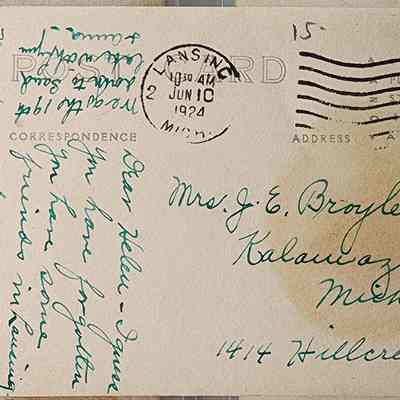 POST CARD
15-
LANSING
1030 AM
2 JUN 10
1924
MICH.
CORRESPONDENCE
ADDRESS
Dear Helen - I guess
You have forgotten
You have some
friends in Lansing
the 19th
to Sand
Lake
Mrs. J. E. Broyle
Kalamaz
Mich
1414 Hillcre